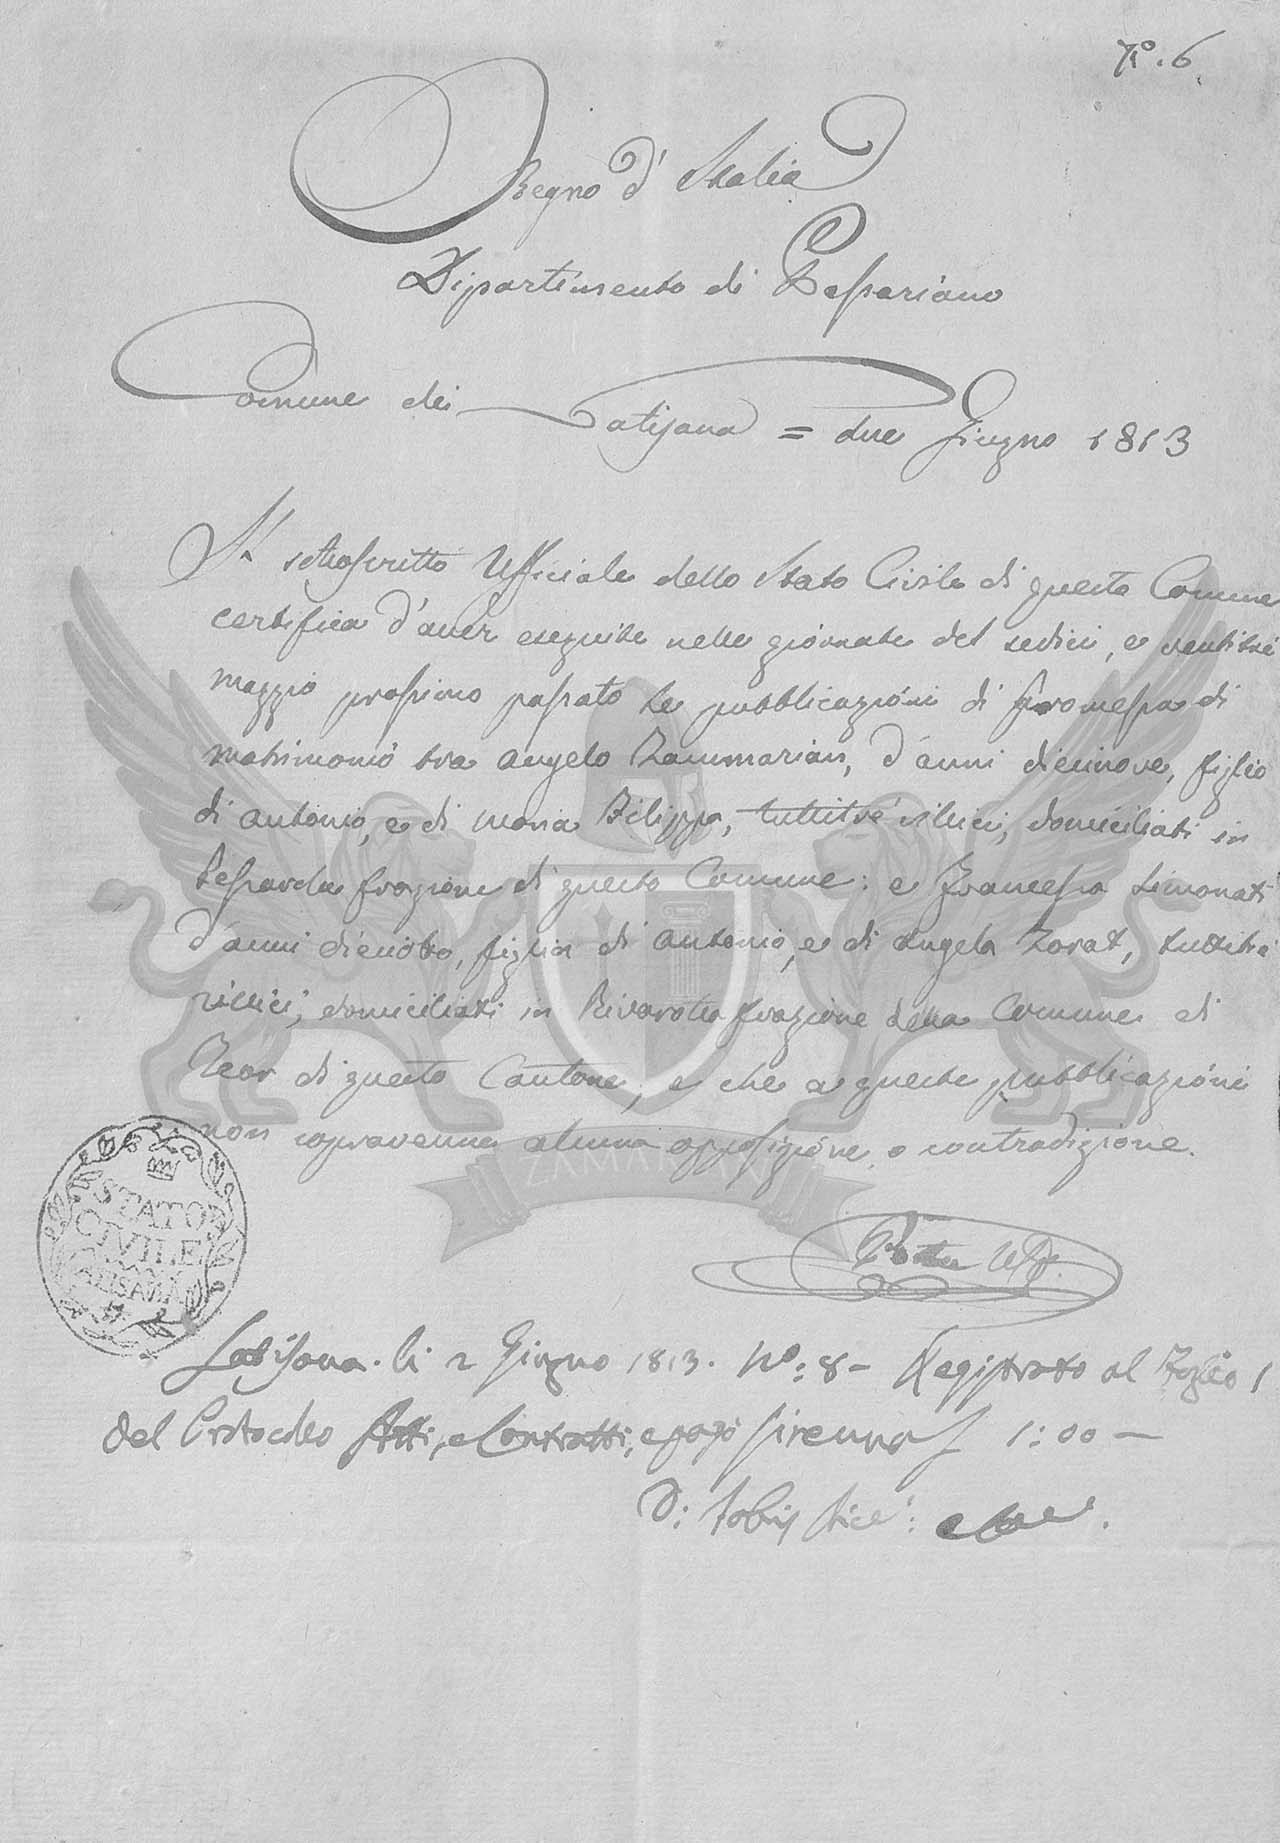 N.° 6
Regno d'Italia
Dipartimento di Passariano
Comune di Latisana = due Giugno 1813
Il sottoscritto Ufficiale dello Stato Civile di questa Comune
certifica d'aver eseguite nelle giornate del sedici, e ventitrè
maggio prossimo passato le pubblicazioni di promessa di
matrimonio tra Angelo Zammarian, d'anni diecinove, figlio
di Antonio, e di Maria Filippa, tuttitrè villici, domiciliati in
frazione di questo Comune: e Francesca Simonati
d'anni dieciotto, figlia di Antonio, e di Angela Zorat, tuttitrè
villici, domiciliati in Rivarotta frazione della Comune di
Teor di questo Cantone, e che a queste pubblicazioni
non sopravenne alcuna opposizione, o contradizione.
ZAMARIAN
STATO
CIVILE
LATISANA
Latisana. li 2 Giugno 1813. N°: 8 - Registrato al Foglio 1
del Protocollo Atti, e Contratti, e pagò 1:00 —